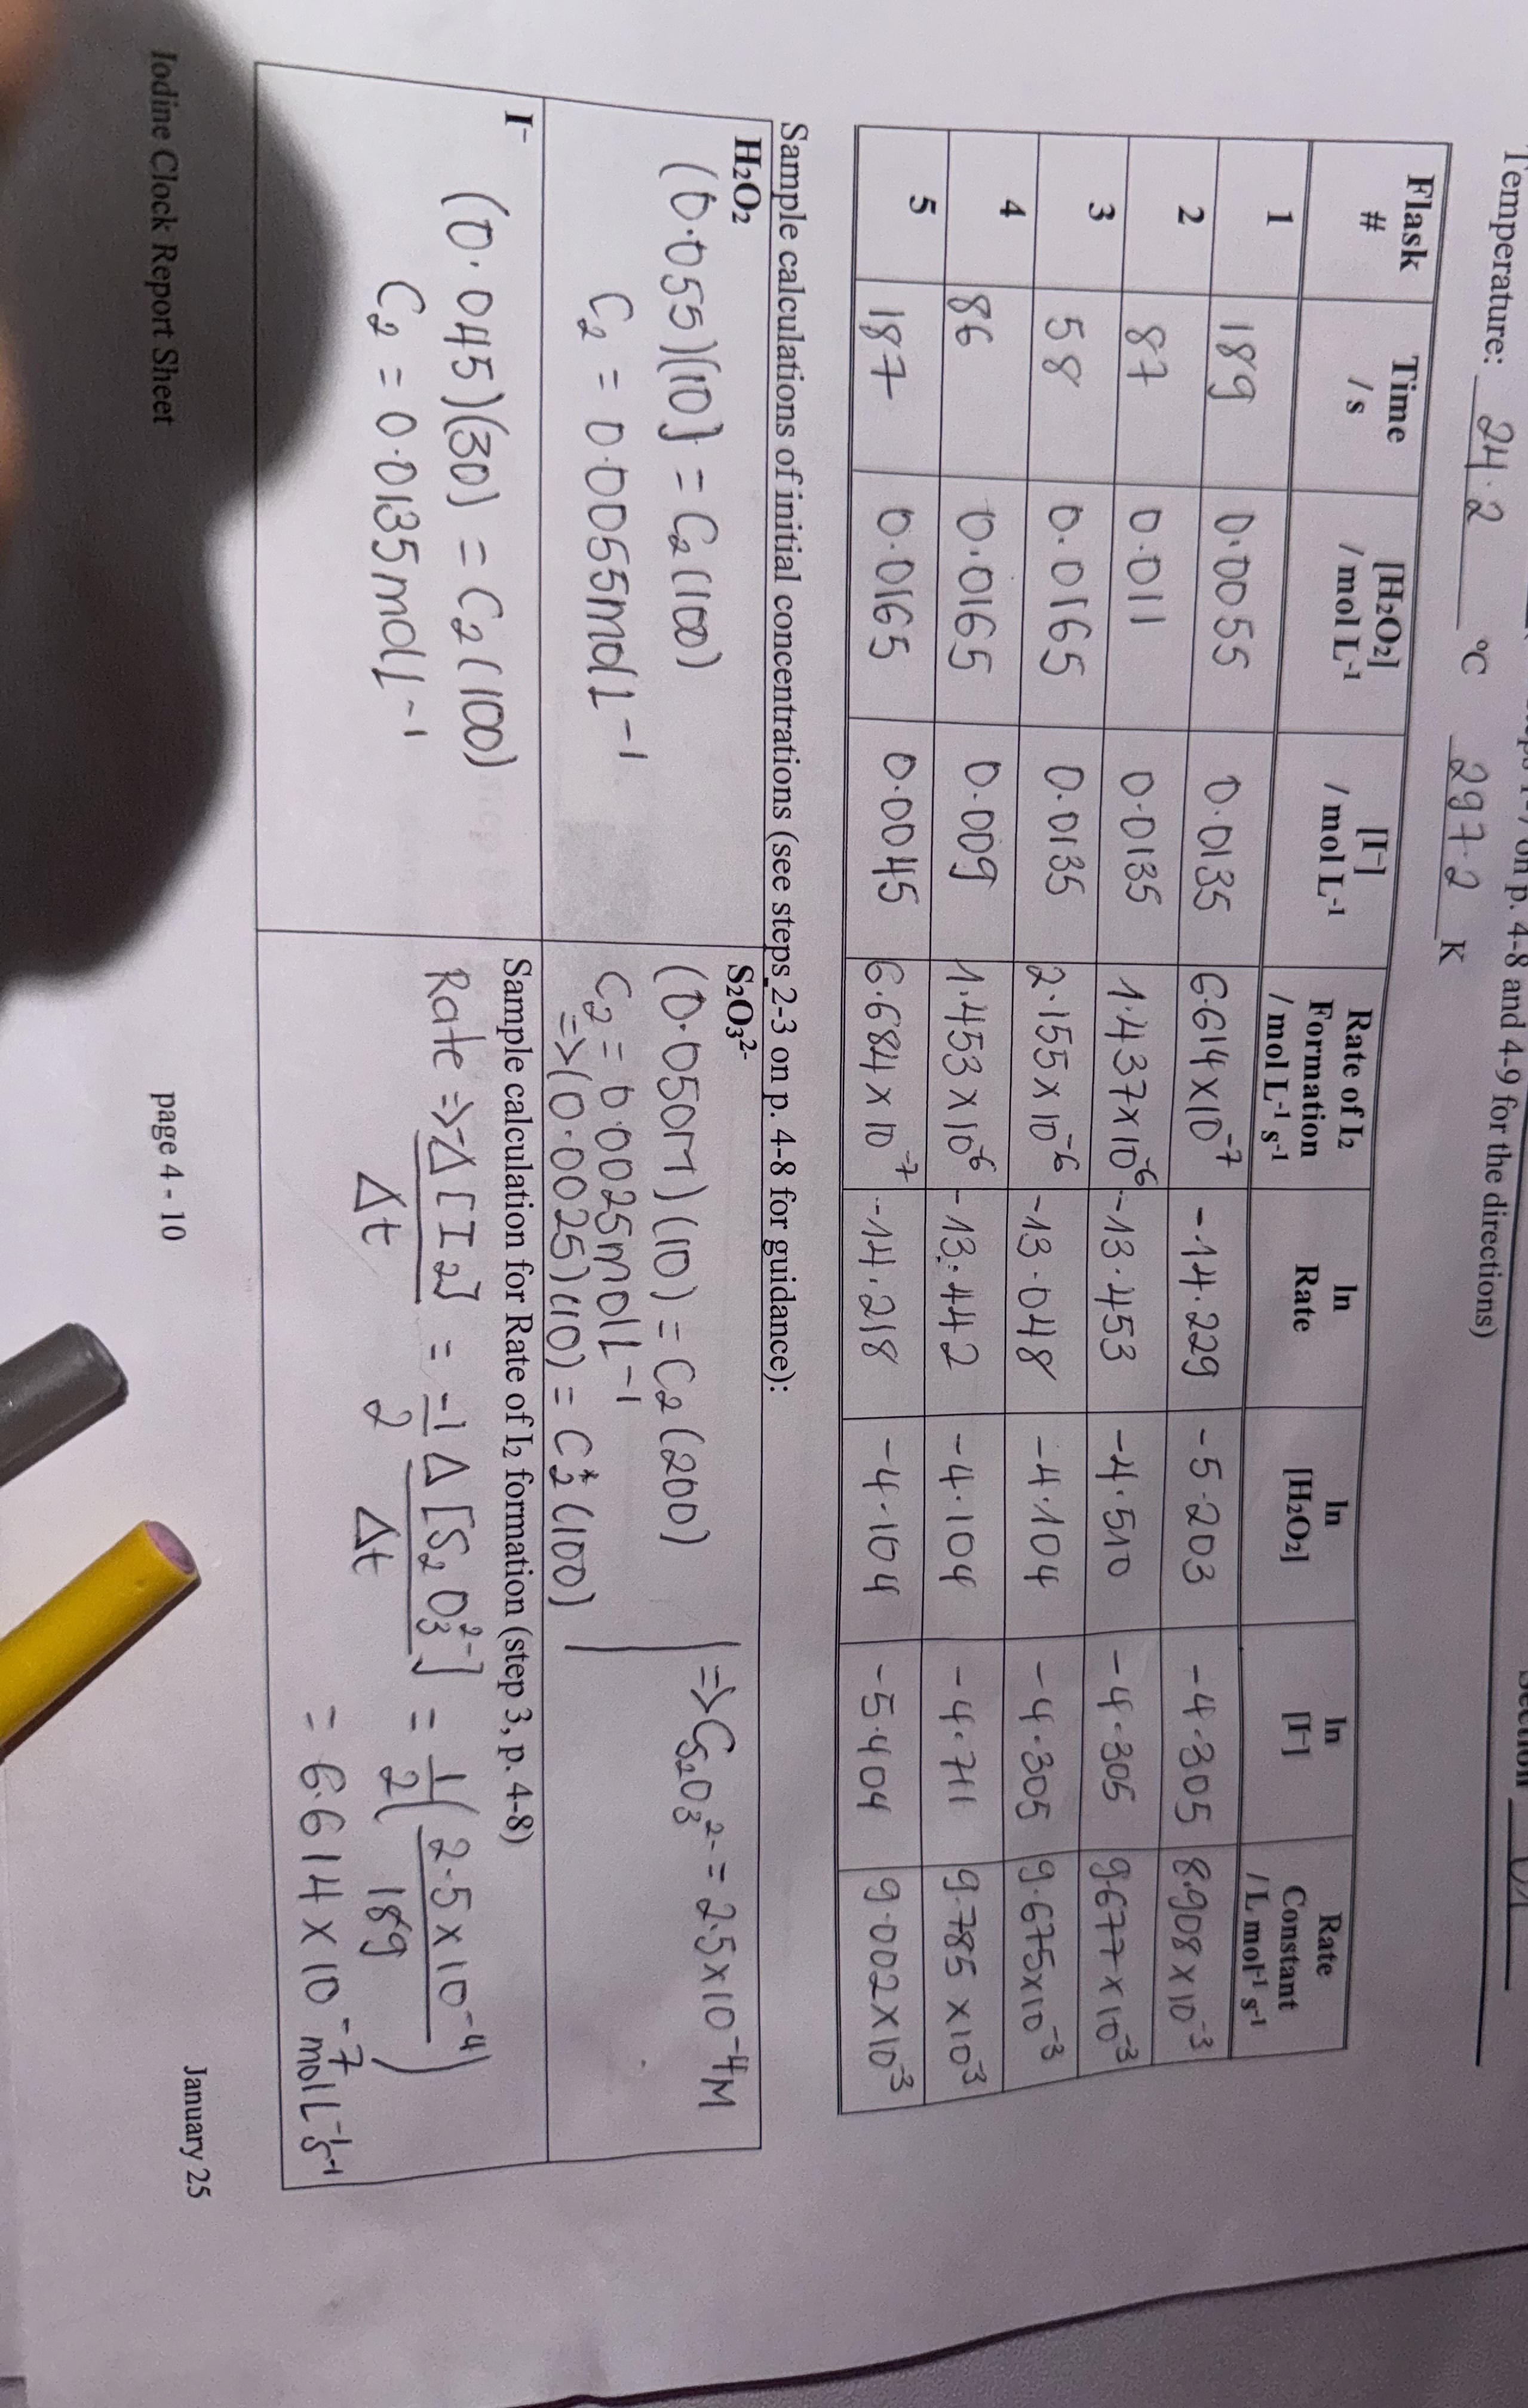 on p. 4-8 and 4-9 for the directions)
Temperature: 24.2 °C 297.2 K
Flask # Time / s [H₂O₂] / mol L⁻¹ [I⁻] / mol L⁻¹ Rate of I₂ Formation / mol L⁻¹ s⁻¹ ln Rate ln [H₂O₂] ln [I⁻] Rate Constant / L mol⁻¹ s⁻¹
1 189 0.0055 0.0135 6.614 x 10⁻⁷ -14.229 -5.203 -4.305 8.908 x 10⁻³
2 87 0.011 0.0135 1.437x10⁻⁶ -13.453 -4.510 -4.305 9.677 x 10⁻³
3 58 0.0165 0.0135 2.155 x 10⁻⁶ -13.048 -4.104 -4.305 9.675x10⁻³
4 86 0.0165 0.009 1.453 x 10⁻⁶ -13.442 -4.104 -4.711 9.785 x10⁻³
5 187 0.0165 0.0045 6.684 x 10⁻⁷ -14.218 -4.104 -5.404 9.002 x 10⁻³
Sample calculations of initial concentrations (see steps 2-3 on p. 4-8 for guidance):
H₂O₂
(0.055)(10) = C₂(100)
C₂ = 0.0055mol L⁻¹
S₂O₃²⁻
(0.050M)(10) = C₂(200)
C₂ = 0.0025mol L⁻¹
=> (0.0025)(10) = C₂*(100)
=> C S₂O₃²⁻ = 2.5x10⁻⁴M
I⁻
(0.045)(30) = C₂(100)
C₂ = 0.0135mol L⁻¹
Sample calculation for Rate of I₂ formation (step 3, p. 4-8)
Rate => -Δ[I₂] / Δt = -1/2 Δ[S₂O₃²⁻] / Δt = 1/2 (2.5 x 10⁻⁴ / 189)
= 6.614 x 10⁻⁷ mol L⁻¹ s⁻¹
Iodine Clock Report Sheet page 4 - 10 January 25